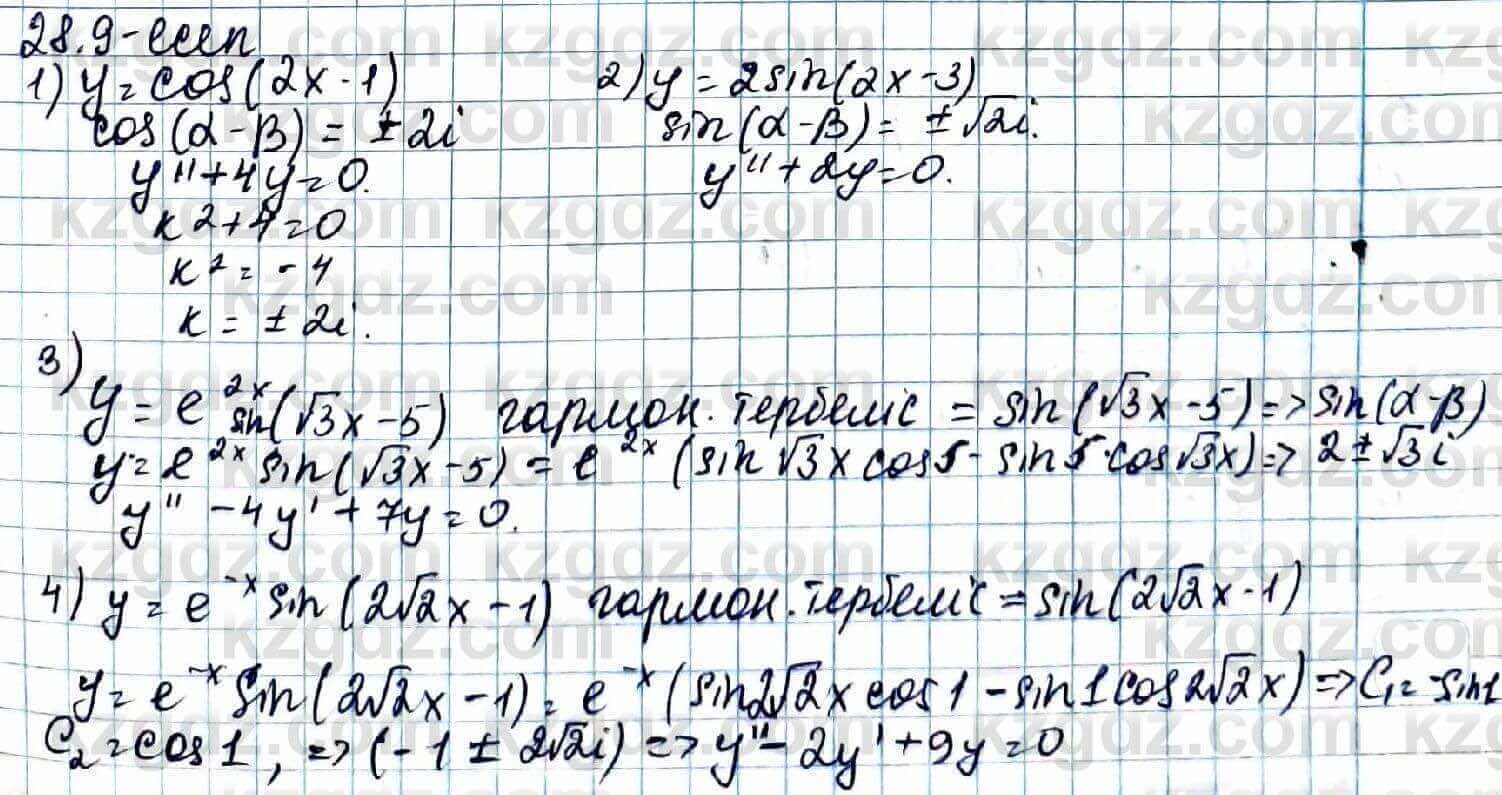 28.9-есеп
1) y = cos(2x - 1)
cos(α-β) = ± 2i
y'' + 4y = 0.
k² + 4 = 0
k² = - 4
k = ± 2i.
2) y = 2sin(2x - 3)
sin(α-β) = ± √2i.
y'' + 2y = 0.
3)
y = e^{2x} sin(√3x - 5) гармон. тербеліс = sin(√3x - 5) => sin(α-β)
y = e^{2x} sin(√3x - 5) = e^{2x} (sin√3x cos5 - sin5·cos√3x) => 2 ± √3i
y'' - 4y' + 7y = 0.
4) y = e^{-x} sin(2√2x - 1) гармон. тербеліс = sin(2√2x - 1)
y = e^{-x} sin(2√2x - 1) = e^{-x} (sin2√2x cos1 - sin1 cos2√2x) => C₁ = -sin1
C₂ = cos1, => (-1 ± 2√2i) => y'' - 2y' + 9y = 0
kzgdz.com